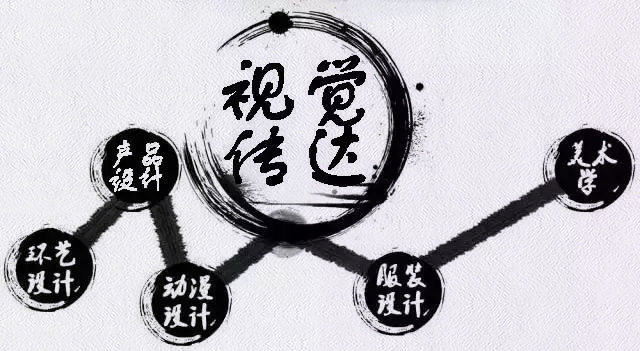 视觉
传达
产品
设计
美术
学
环艺
设计
动漫
设计
服装
设计